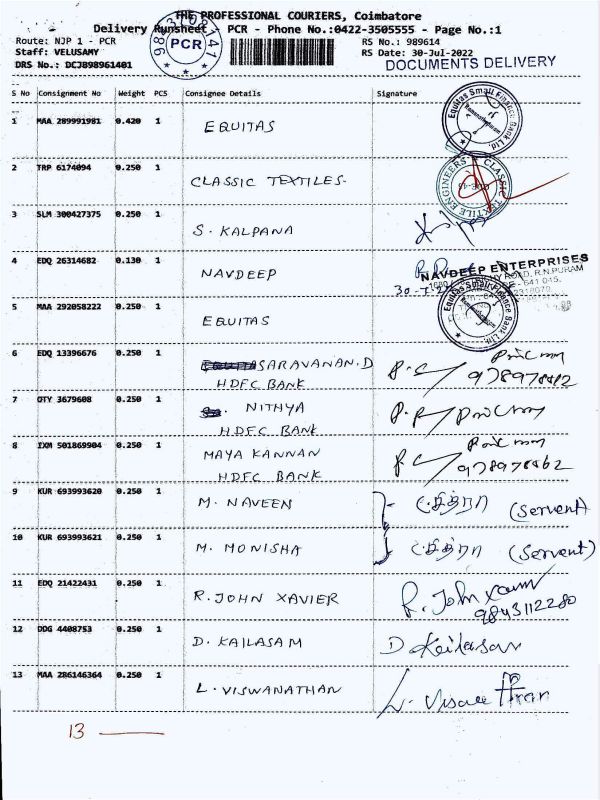 THE PROFESSIONAL COURIERS, Coimbatore
Delivery Runsheet - PCR - Phone No.:0422-3505555 - Page No.:1
Route: NJP 1 - PCR
RS No.: 989614
Staff: VELUSAMY
RS Date: 30-Jul-2022
DRS No.: DCJ898961401
DOCUMENTS DELIVERY
PCR
S No Consignment No Weight PCS Consignee Details Signature
1 MAA 289991981 0.420 1 EQUITAS
Equitas Small Finance Bank Ltd.
2 TRP 6174094 0.250 1 CLASSIC TEXTILES-
CLASSIC TEXTILE ENGINEERS
3 SLM 300427375 0.250 1 S. KALPANA
4 EDQ 26314682 0.130 1 NAVDEEP
NAVDEEP ENTERPRISES
ROAD, R.N.PURAM
641 045.
5 MAA 292058222 0.250 1 EQUITAS
Equitas Small Finance Bank Ltd.
6 EDQ 13396676 0.250 1 SARAVANAN.D
HDFC BANK
7 OTY 3679608 0.250 1 NITHYA
HDFC BANK
8 IXM 501869904 0.250 1 MAYA KANNAN
HDFC BANK
9 KUR 693993620 0.250 1 M. NAVEEN சித்ரா (Servent)
10 KUR 693993621 0.250 1 M. MONISHA சித்ரா (Servent)
11 EDQ 21422431 0.250 1 R. JOHN XAVIER R. John Xavier
9843112280
12 DDG 4408753 0.250 1 D. KAILASAM D Kailasam
13 MAA 286146364 0.250 1 L. VISWANATHAN L. Viswanathan
13